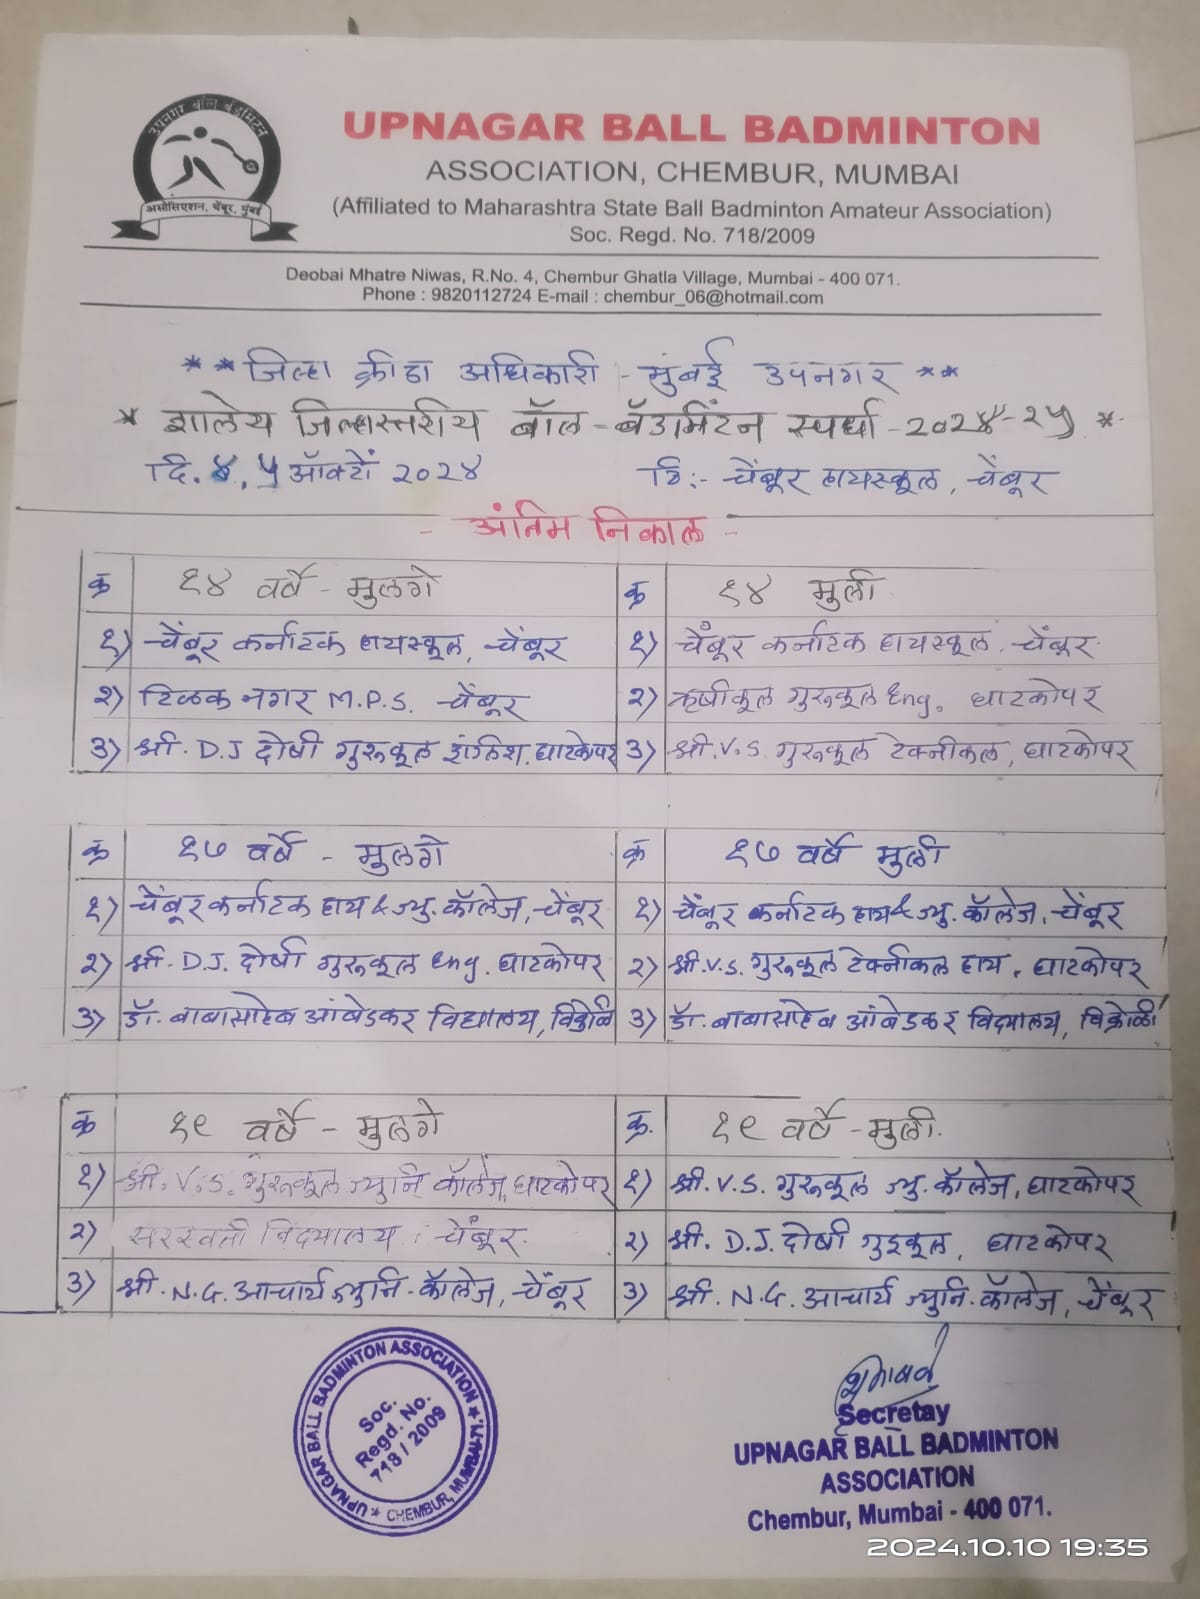 उपनगर बॉल बॅडमिंटन
असोसिएशन, चेंबूर, मुंबई
UPNAGAR BALL BADMINTON
ASSOCIATION, CHEMBUR, MUMBAI
(Affiliated to Maharashtra State Ball Badminton Amateur Association)
Soc. Regd. No. 718/2009
Deobai Mhatre Niwas, R.No. 4, Chembur Ghatla Village, Mumbai - 400 071.
Phone : 9820112724 E-mail : chembur_06@hotmail.com
* * जिल्हा क्रीडा अधिकारी - मुंबई उपनगर * *
* शालेय जिल्हास्तरीय बॉल - बॅडमिंटन स्पर्धा - २०२४-२५ *
दि. ४, ५ ऑक्टों २०२४ ठि:- चेंबूर हायस्कूल, चेंबूर
- अंतिम निकाल -
क्र १४ वर्षे - मुलगे क्र १४ मुली
१) चेंबूर कर्नाटक हायस्कूल, चेंबूर १) चेंबूर कर्नाटक हायस्कूल, चेंबूर
२) टिळक नगर M.P.S. चेंबूर २) ऋषीकूल गुरुकूल Eng. घाटकोपर
३) श्री. D.J दोषी गुरुकूल इंग्लिश, घाटकोपर ३) श्री. V.S. गुरुकूल टेक्नीकल, घाटकोपर
क्र १७ वर्षे - मुलगे क्र १७ वर्षे मुली
१) चेंबूर कर्नाटक हाय & ज्यु. कॉलेज, चेंबूर १) चेंबूर कर्नाटक हाय & ज्यु. कॉलेज, चेंबूर
२) श्री. D.J. दोषी गुरुकूल Eng. घाटकोपर २) श्री. V.S. गुरुकूल टेक्नीकल हाय, घाटकोपर
३) डॉ. बाबासाहेब आंबेडकर विद्यालय, विक्रोळी ३) डॉ. बाबासाहेब आंबेडकर विद्यालय, विक्रोळी
क्र १९ वर्षे - मुलगे क्र. १९ वर्षे - मुली.
१) श्री. V.S. गुरुकूल ज्युनि कॉलेज, घाटकोपर १) श्री. V.S. गुरुकूल ज्यु. कॉलेज, घाटकोपर
२) सरस्वती विद्यालय, चेंबूर. २) श्री. D.J. दोषी गुरुकूल, घाटकोपर
३) श्री. N.G. आचार्य ज्युनि. कॉलेज, चेंबूर ३) श्री. N.G. आचार्य ज्युनि. कॉलेज, चेंबूर
UPNAGAR BALL BADMINTON ASSOCIATION
CHEMBUR, MUMBAI
Soc.
Regd. No.
718 / 2009
Secretay
UPNAGAR BALL BADMINTON
ASSOCIATION
Chembur, Mumbai - 400 071.
2024.10.10 19:35